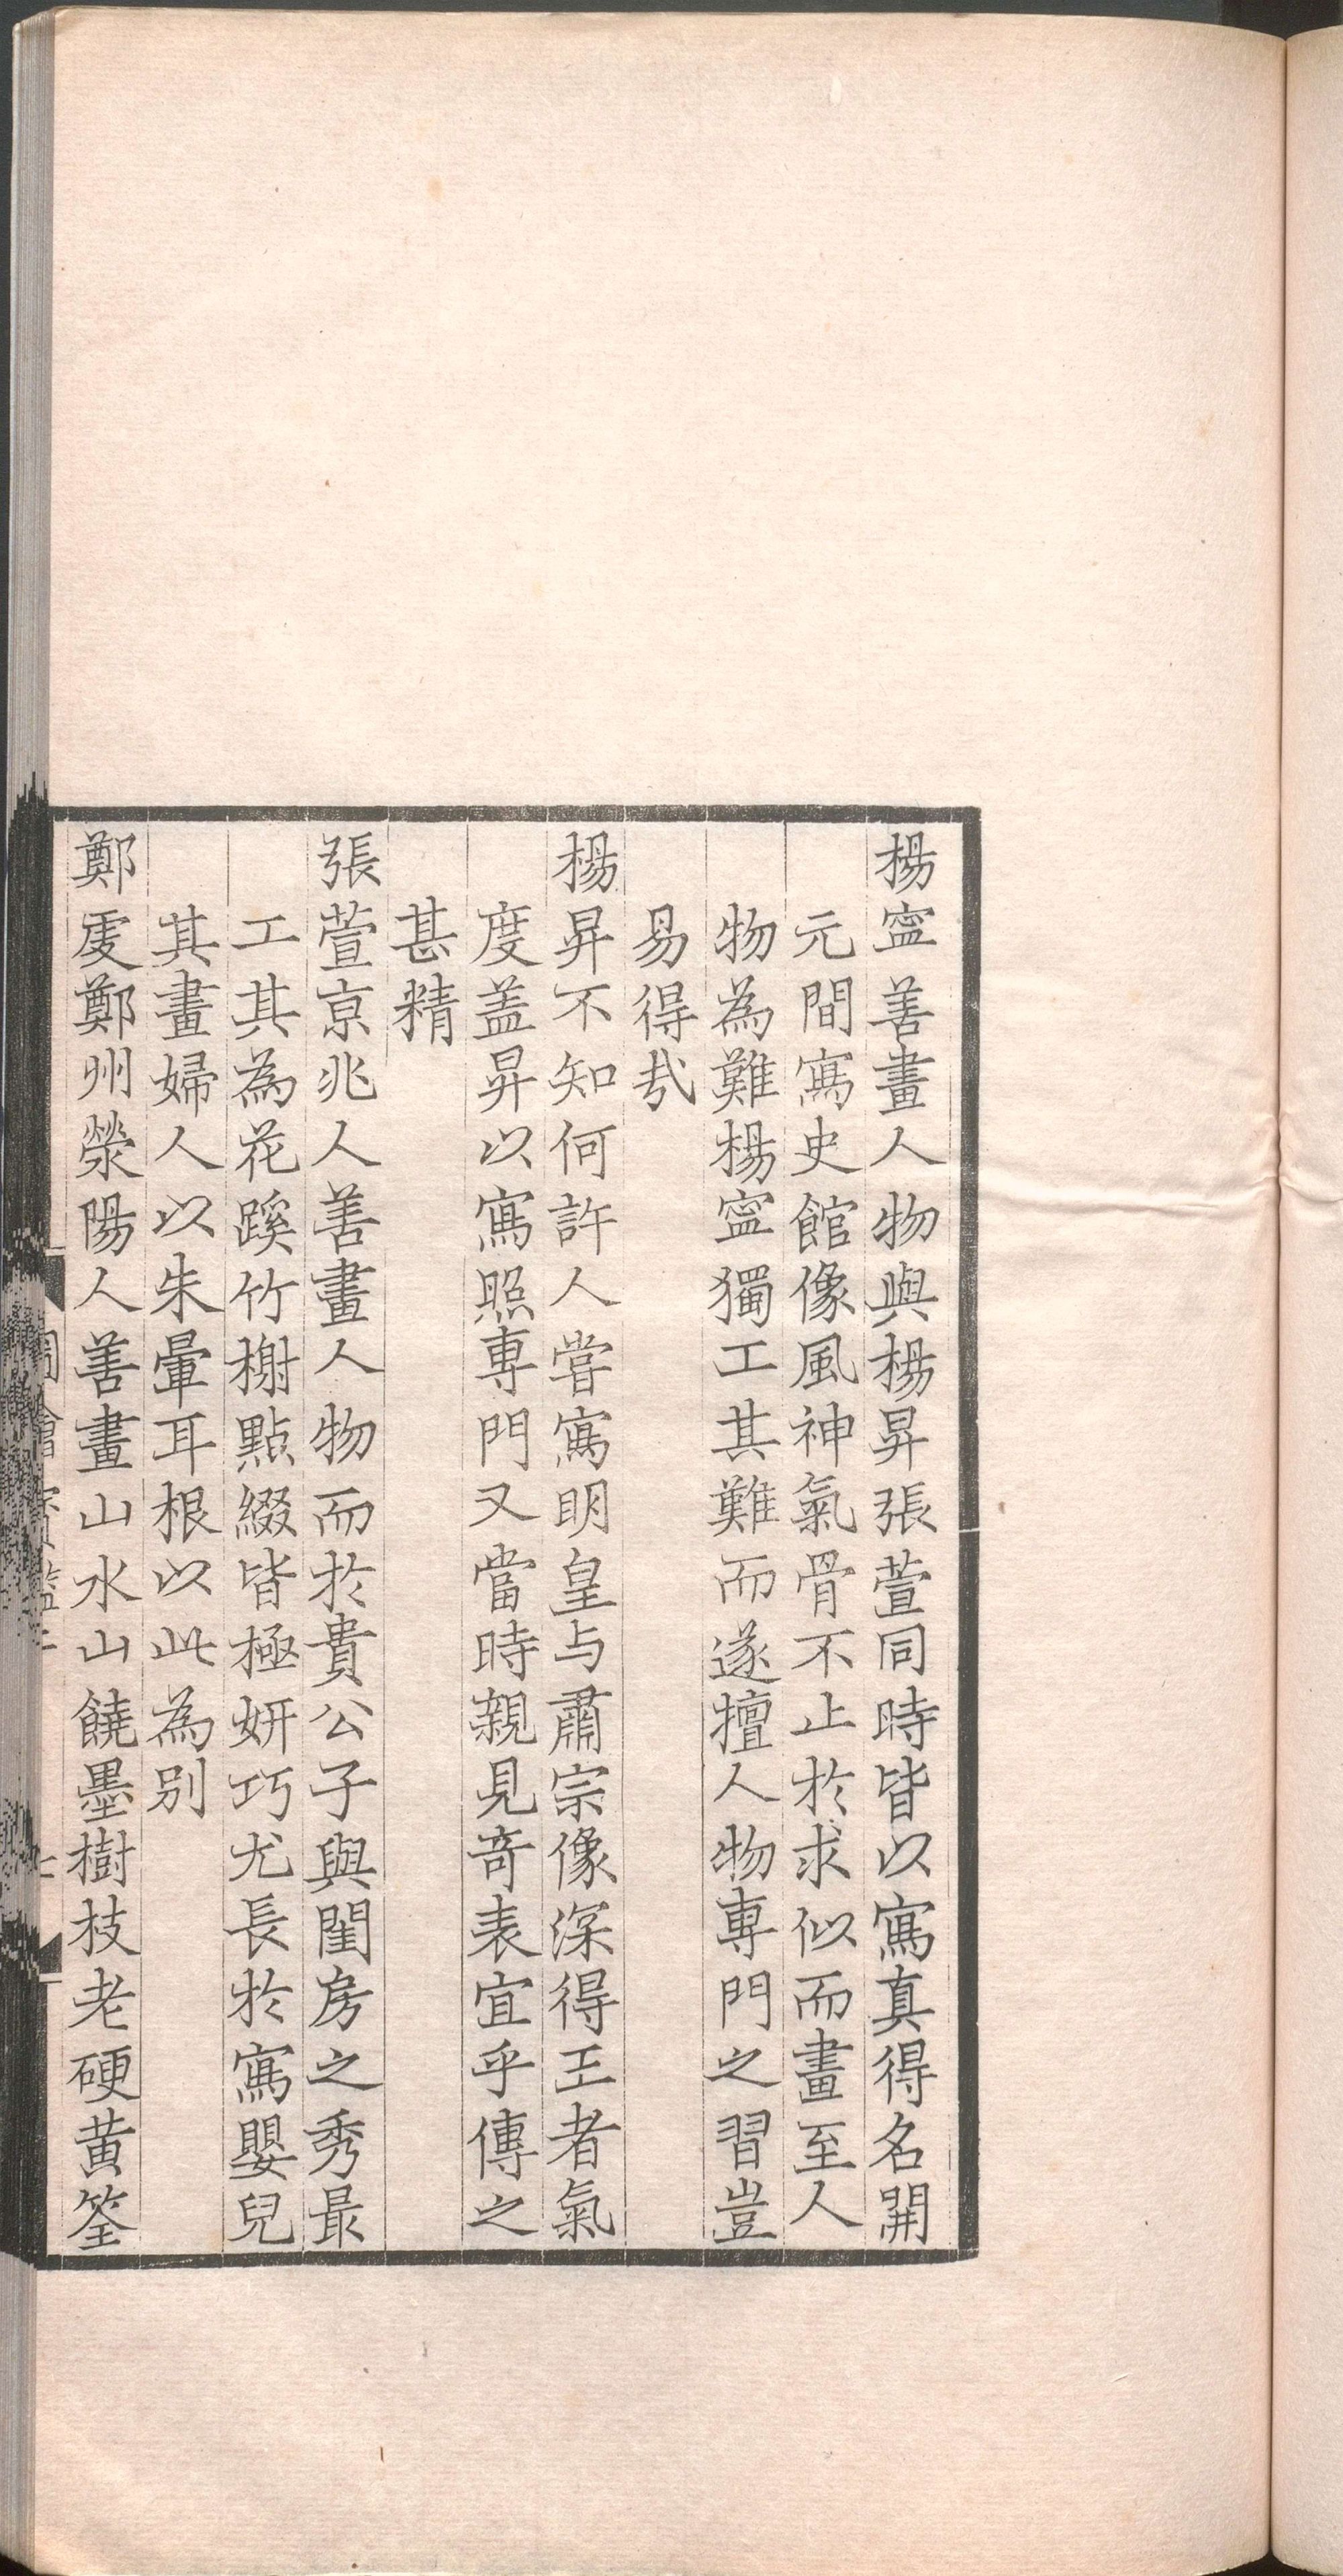 楊寍善畫人物與楊昇張萱同時皆以寫真得名開
元間寫史館像風神氣骨不止於求似而畫至人
物為難楊寍獨工其難而遂擅人物專門之習豈
易得㢤
楊昇不知何許人嘗寫明皇与肅宗像深得王者氣
度盖昇以寫照專門又當時親見奇表宜乎傳之
甚精
張萱京兆人善畫人物而於貴公子與閨房之秀最
工其為花蹊竹榭點綴皆極妍巧尤長於寫嬰兒
其畫婦人以朱暈耳根以此為别
鄭虔鄭州滎陽人善畫山水山饒墨樹枝老硬黄筌